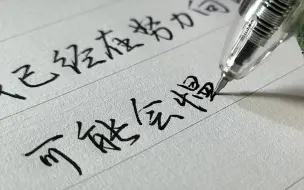 已经在努力向
可能会